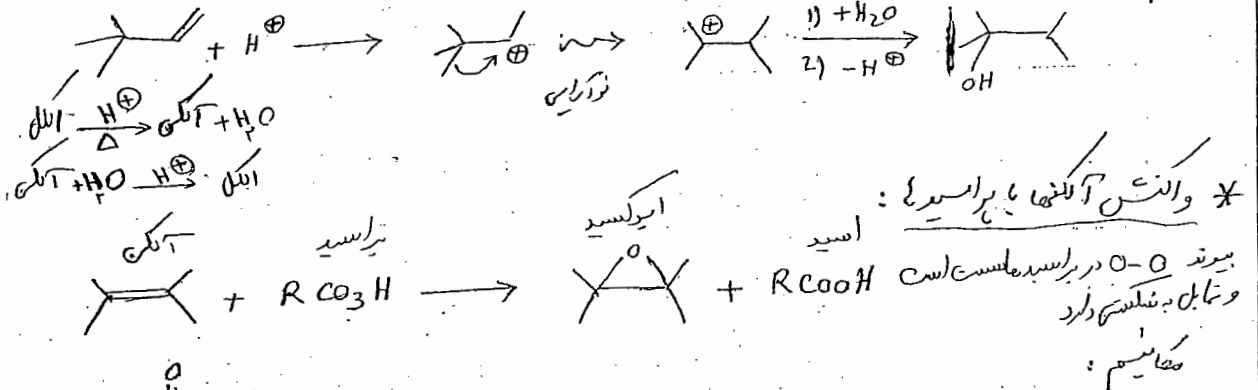 + H⊕ ⟶ ⊕ نوآرایی ⊕ 1) +H2O 2) -H⊕ OH
الکل H⊕ Δ ⟶ آلکن + H2O
آلکن + H2O H⊕ ⟶ الکل
* واکنش آلکنها با پراسیدها :
آلکن + پراسید RCO3H ⟶ اپوکسید O + اسید RCOOH
پیوند O-O در پراسیدها سست است
و تمایل به شکستن دارد
مکانیسم :
O